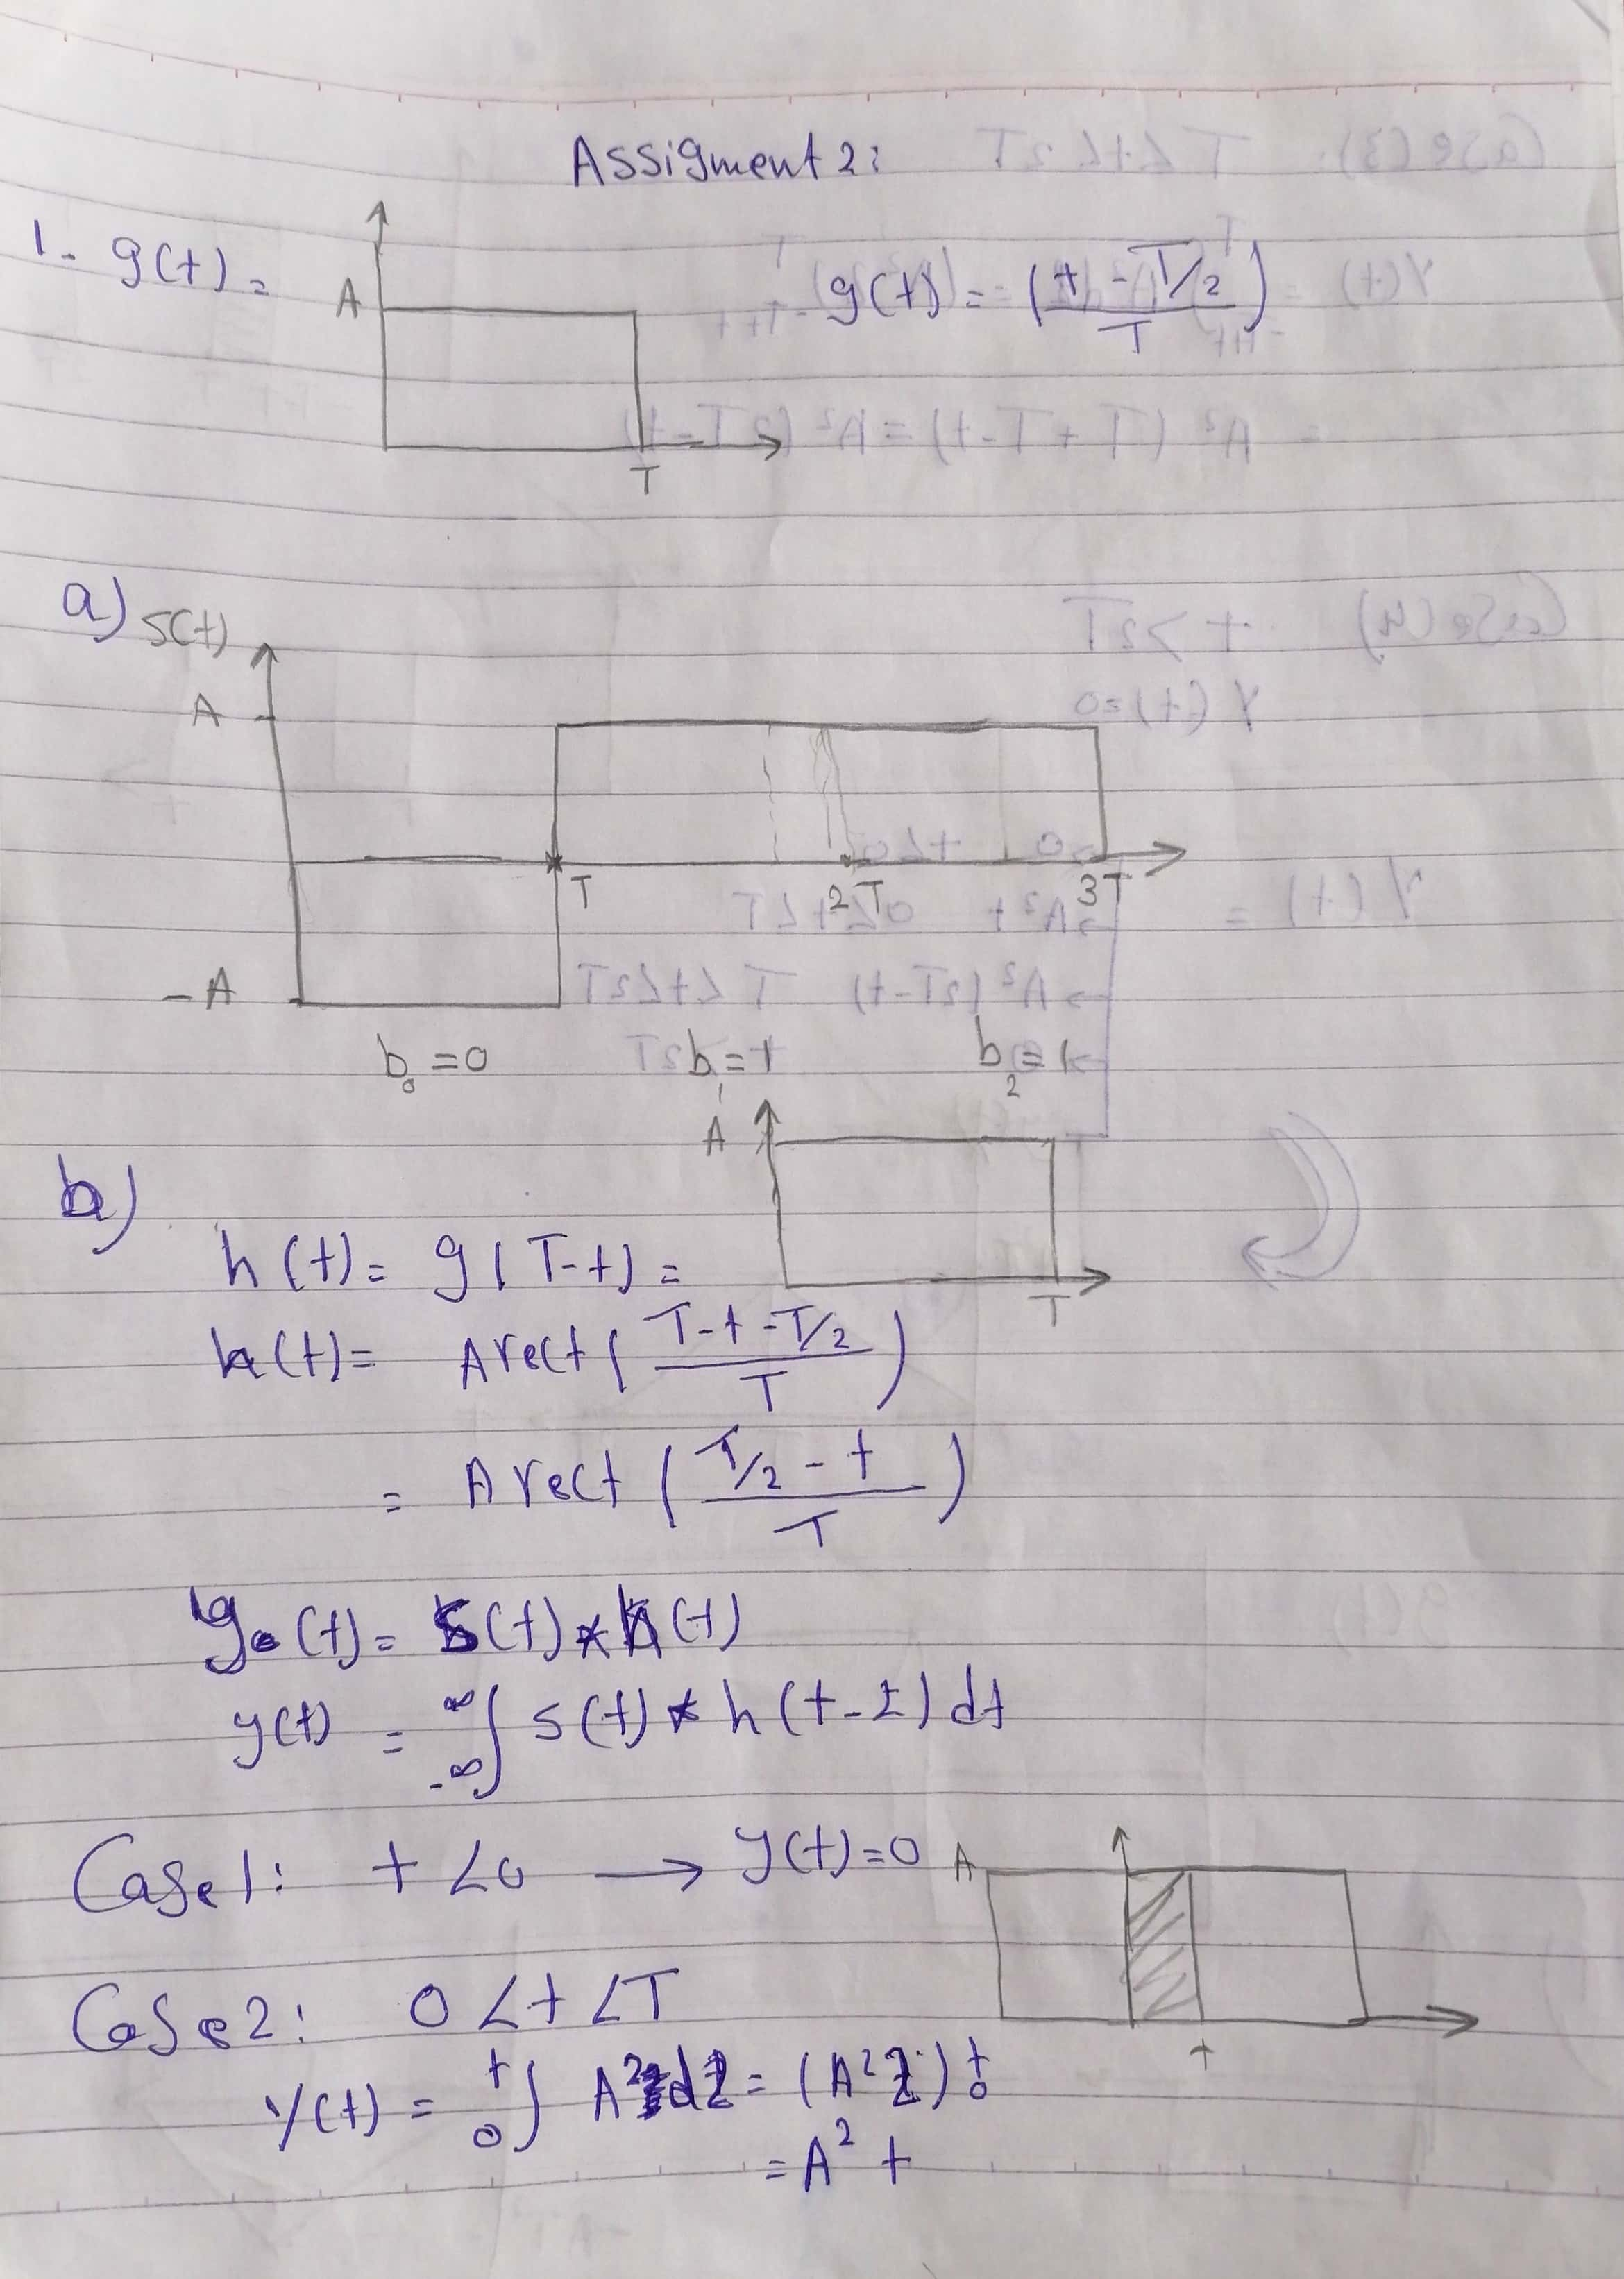 Assigment 2:
1- g(t) =
A
T
g(t) = (t - T/2 / T)
a) s(t)
A
T 2T 3T
-A
b₀ = 0 b₁ = 1 b₂ = 1
b)
A
T
h(t) = g(T-t) =
h(t) = A rect (T-t-T/2 / T)
= A rect (T/2 - t / T)
g₀(t) = s(t) * h(t)
y(t) = ∞ ∫ -∞ s(t) * h(t-z) dt
Case 1: t < 0 → y(t) = 0
A
t
Case 2: 0 < t < T
y(t) = t ∫ 0 A² dz = (A² z) t 0
= A² t